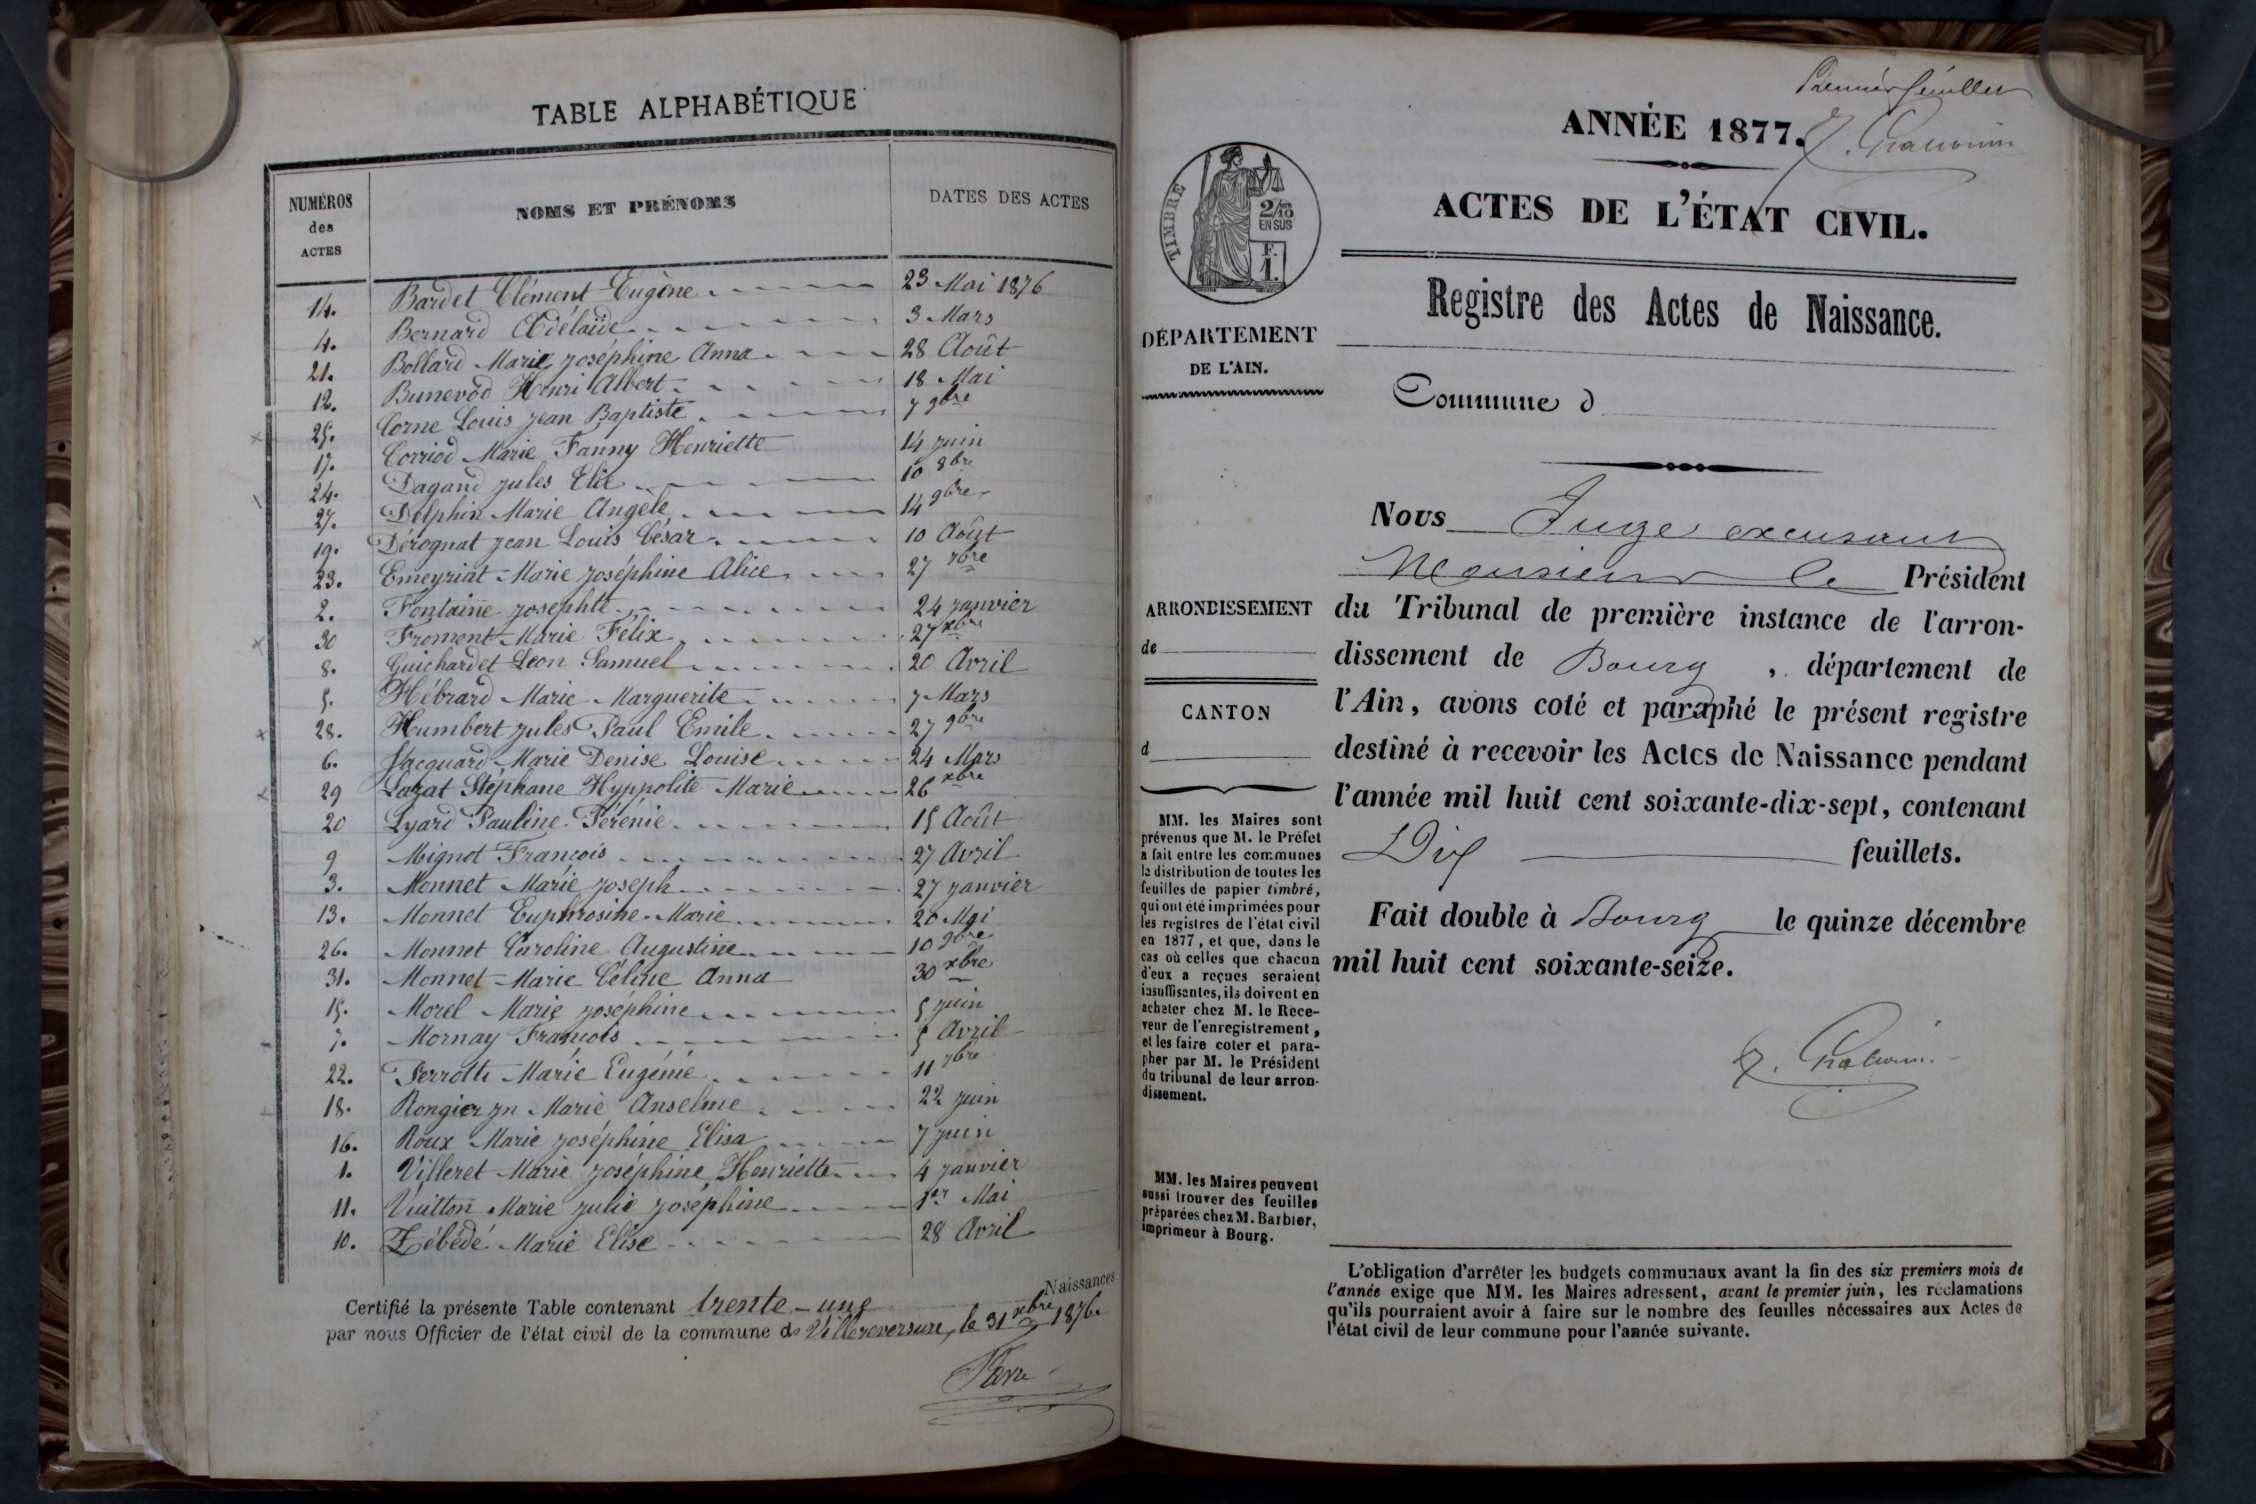 TABLE ALPHABÉTIQUE
NUMÉROS des ACTES NOMS ET PRÉNOMS DATES DES ACTES
14. Bardet Clément Eugène 23 Mai 1876
4. Bernard Adélaïde 3 Mars
21. Bollard Marie Joséphine Anna 28 Août
12. Bunevod Henri Albert 18 Mai
25. Corne Louis Jean Baptiste 7 9bre
17. Corriod Marie Fanny Henriette 14 Juin
24. Dagand Jules Elie 10 8bre
27. Delphin Marie Angèle 14 9bre
19. Dérognat Jean Louis César 10 Août
23. Emeyriat Marie Joséphine Alice 27 7bre
2. Fontaine Josephte 24 Janvier
30 Froment Marie Félix 27 xbre
8. Guichardet Léon Samuel 20 Avril
5. Hébrard Marie Marguerite 7 Mars
28. Humbert Jules Paul Emile 27 9bre
6. Jacquard Marie Denise Louise 24 Mars
29 Lazat Stéphane Hyppolite Marie 26 xbre
20 Lyard Pauline Pérénie 15 Août
9 Mignot François 27 Avril
3. Monnet Marie Joseph 27 Janvier
13. Monnet Euphrosine Marie 20 Mai
26. Monnet Caroline Augustine 10 9bre
31. Monnet Marie Céline Anna 30 xbre
15. Morel Marie Joséphine 5 Juin
7. Mornay François 5 Avril
22. Perrotte Marie Eugénie 11 7bre
18. Rongier Jn Marie Anselme 22 Juin
16. Roux Marie Joséphine Elisa 7 Juin
1. Villeret Marie Joséphine Henriette 4 Janvier
11. Vuitton Marie Julie Joséphine 1er Mai
10. Zébédé Marie Elise 28 Avril
Certifié la présente Table contenant trente-une Naissances
par nous Officier de l'état civil de la commune de Villereversure, le 31 xbre 1876.
Premier feuillet
ANNÉE 1877.
ACTES DE L'ÉTAT CIVIL.
TIMBRE
2/10
EN SUS
F.
1.
Registre des Actes de Naissance.
DÉPARTEMENT
DE L'AIN.
Commune d
Nous Juge excusant
Monsieur le Président
du Tribunal de première instance de l'arron-
dissement de Bourg, département de
l'Ain, avons coté et paraphé le présent registre
destiné à recevoir les Actes de Naissance pendant
l'année mil huit cent soixante-dix-sept, contenant
Dix feuillets.
Fait double à Bourg le quinze décembre
mil huit cent soixante-seize.
ARRONDISSEMENT
de
CANTON
d
MM. les Maires sont
prévenus que M. le Préfet
a fait entre les communes
la distribution de toutes les
feuilles de papier timbré,
qui ont été imprimées pour
les registres de l'état civil
en 1877, et que, dans le
cas où celles que chacun
d'eux a reçues seraient
insuffisantes, ils doivent en
acheter chez M. le Rece-
veur de l'enregistrement,
et les faire coter et para-
pher par M. le Président
du tribunal de leur arron-
dissement.
MM. les Maires peuvent
aussi trouver des feuilles
préparées chez M. Barbier,
imprimeur à Bourg.
L'obligation d'arrêter les budgets communaux avant la fin des six premiers mois de
l'année exige que MM. les Maires adressent, avant le premier juin, les réclamations
qu'ils pourraient avoir à faire sur le nombre des feuilles nécessaires aux Actes de
l'état civil de leur commune pour l'année suivante.